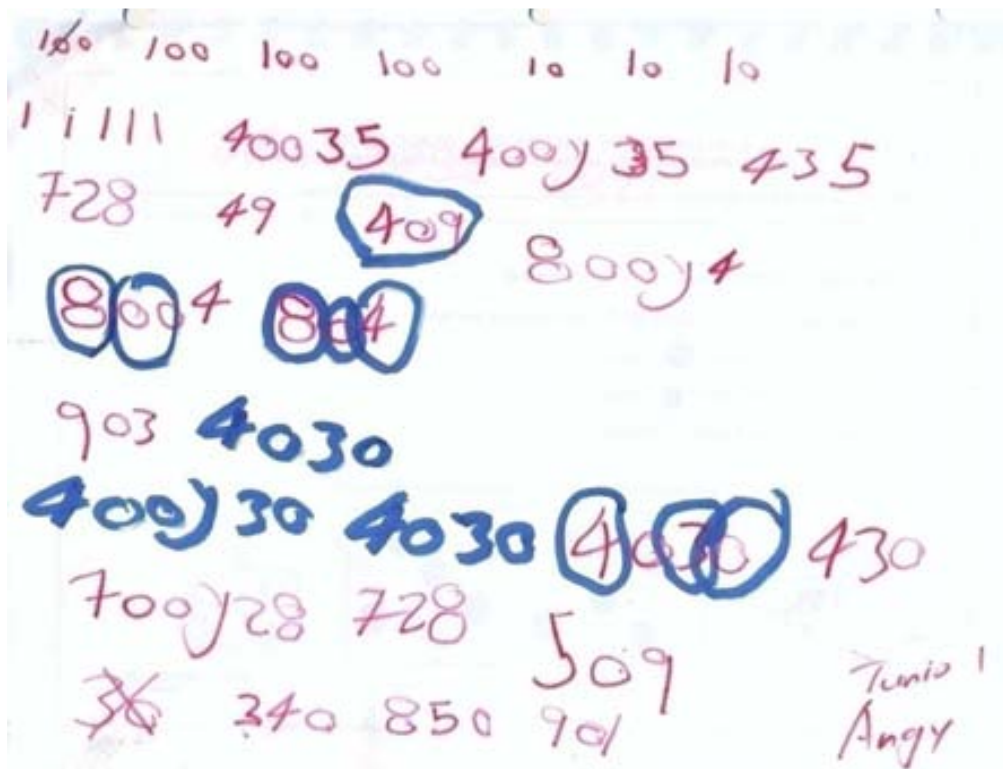 100 100 100 100 10 10 10
1 1 1 1 1 40035 400y 35 435
728 49 409
800y 4
8004 804
903 4030
400y 30 4030 4030 430
700y28 728
509
36 340 850 901
Junio 1
Angy